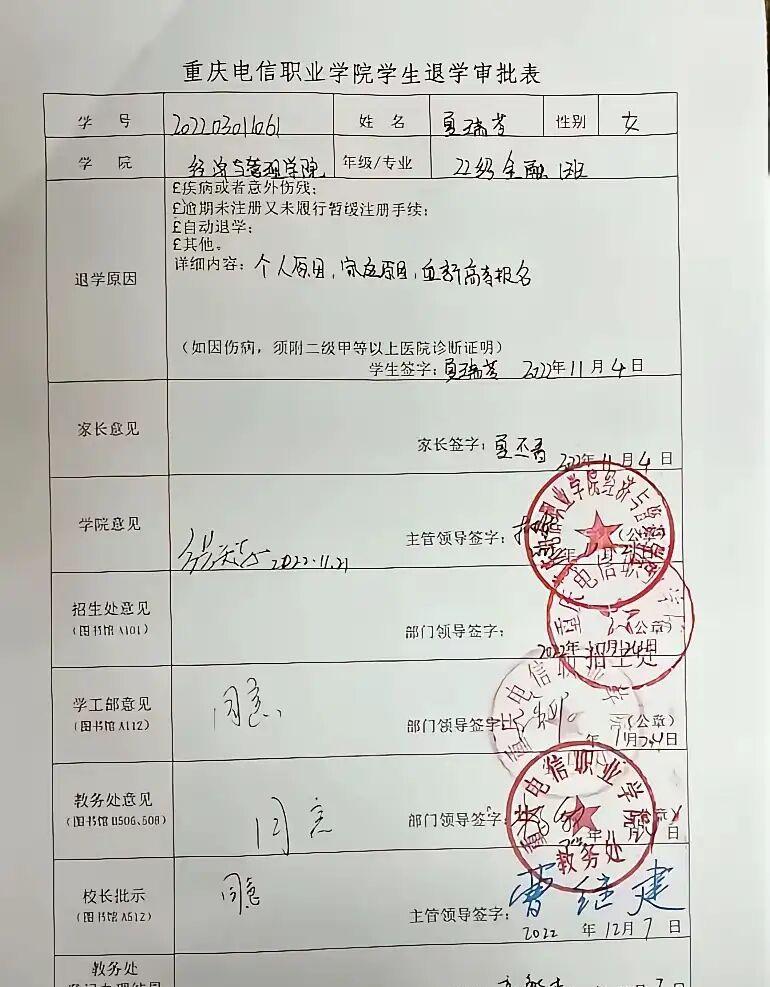 重庆电信职业学院学生退学审批表
学 号 2022030116061 姓 名 夏瑞芳 性别 女
学 院 经济与管理学院 年级/专业 22级金融1班
退学原因
£疾病或者意外伤残;
£逾期未注册又未履行暂缓注册手续;
£自动退学;
£其他。
详细内容: 个人原因,家庭原因,重新高考报名
(如因伤病,须附二级甲等以上医院诊断证明)
学生签字: 夏瑞芳 2022年11月4日
家长意见
家长签字: 2022年11月4日
学院意见
2022.11.21
主管领导签字: (公章)
招生处意见
(图书馆A101)
部门领导签字: (公章)
学工部意见
(图书馆A112)
同意
部门领导签字: (公章)
年11月24日
教务处意见
(图书馆B506、508)
同意
部门领导签字:
年 月 日
重庆电信职业学院
教务处
校长批示
(图书馆A512)
同意
主管领导签字: 曹继建
2022年12月7日
教务处